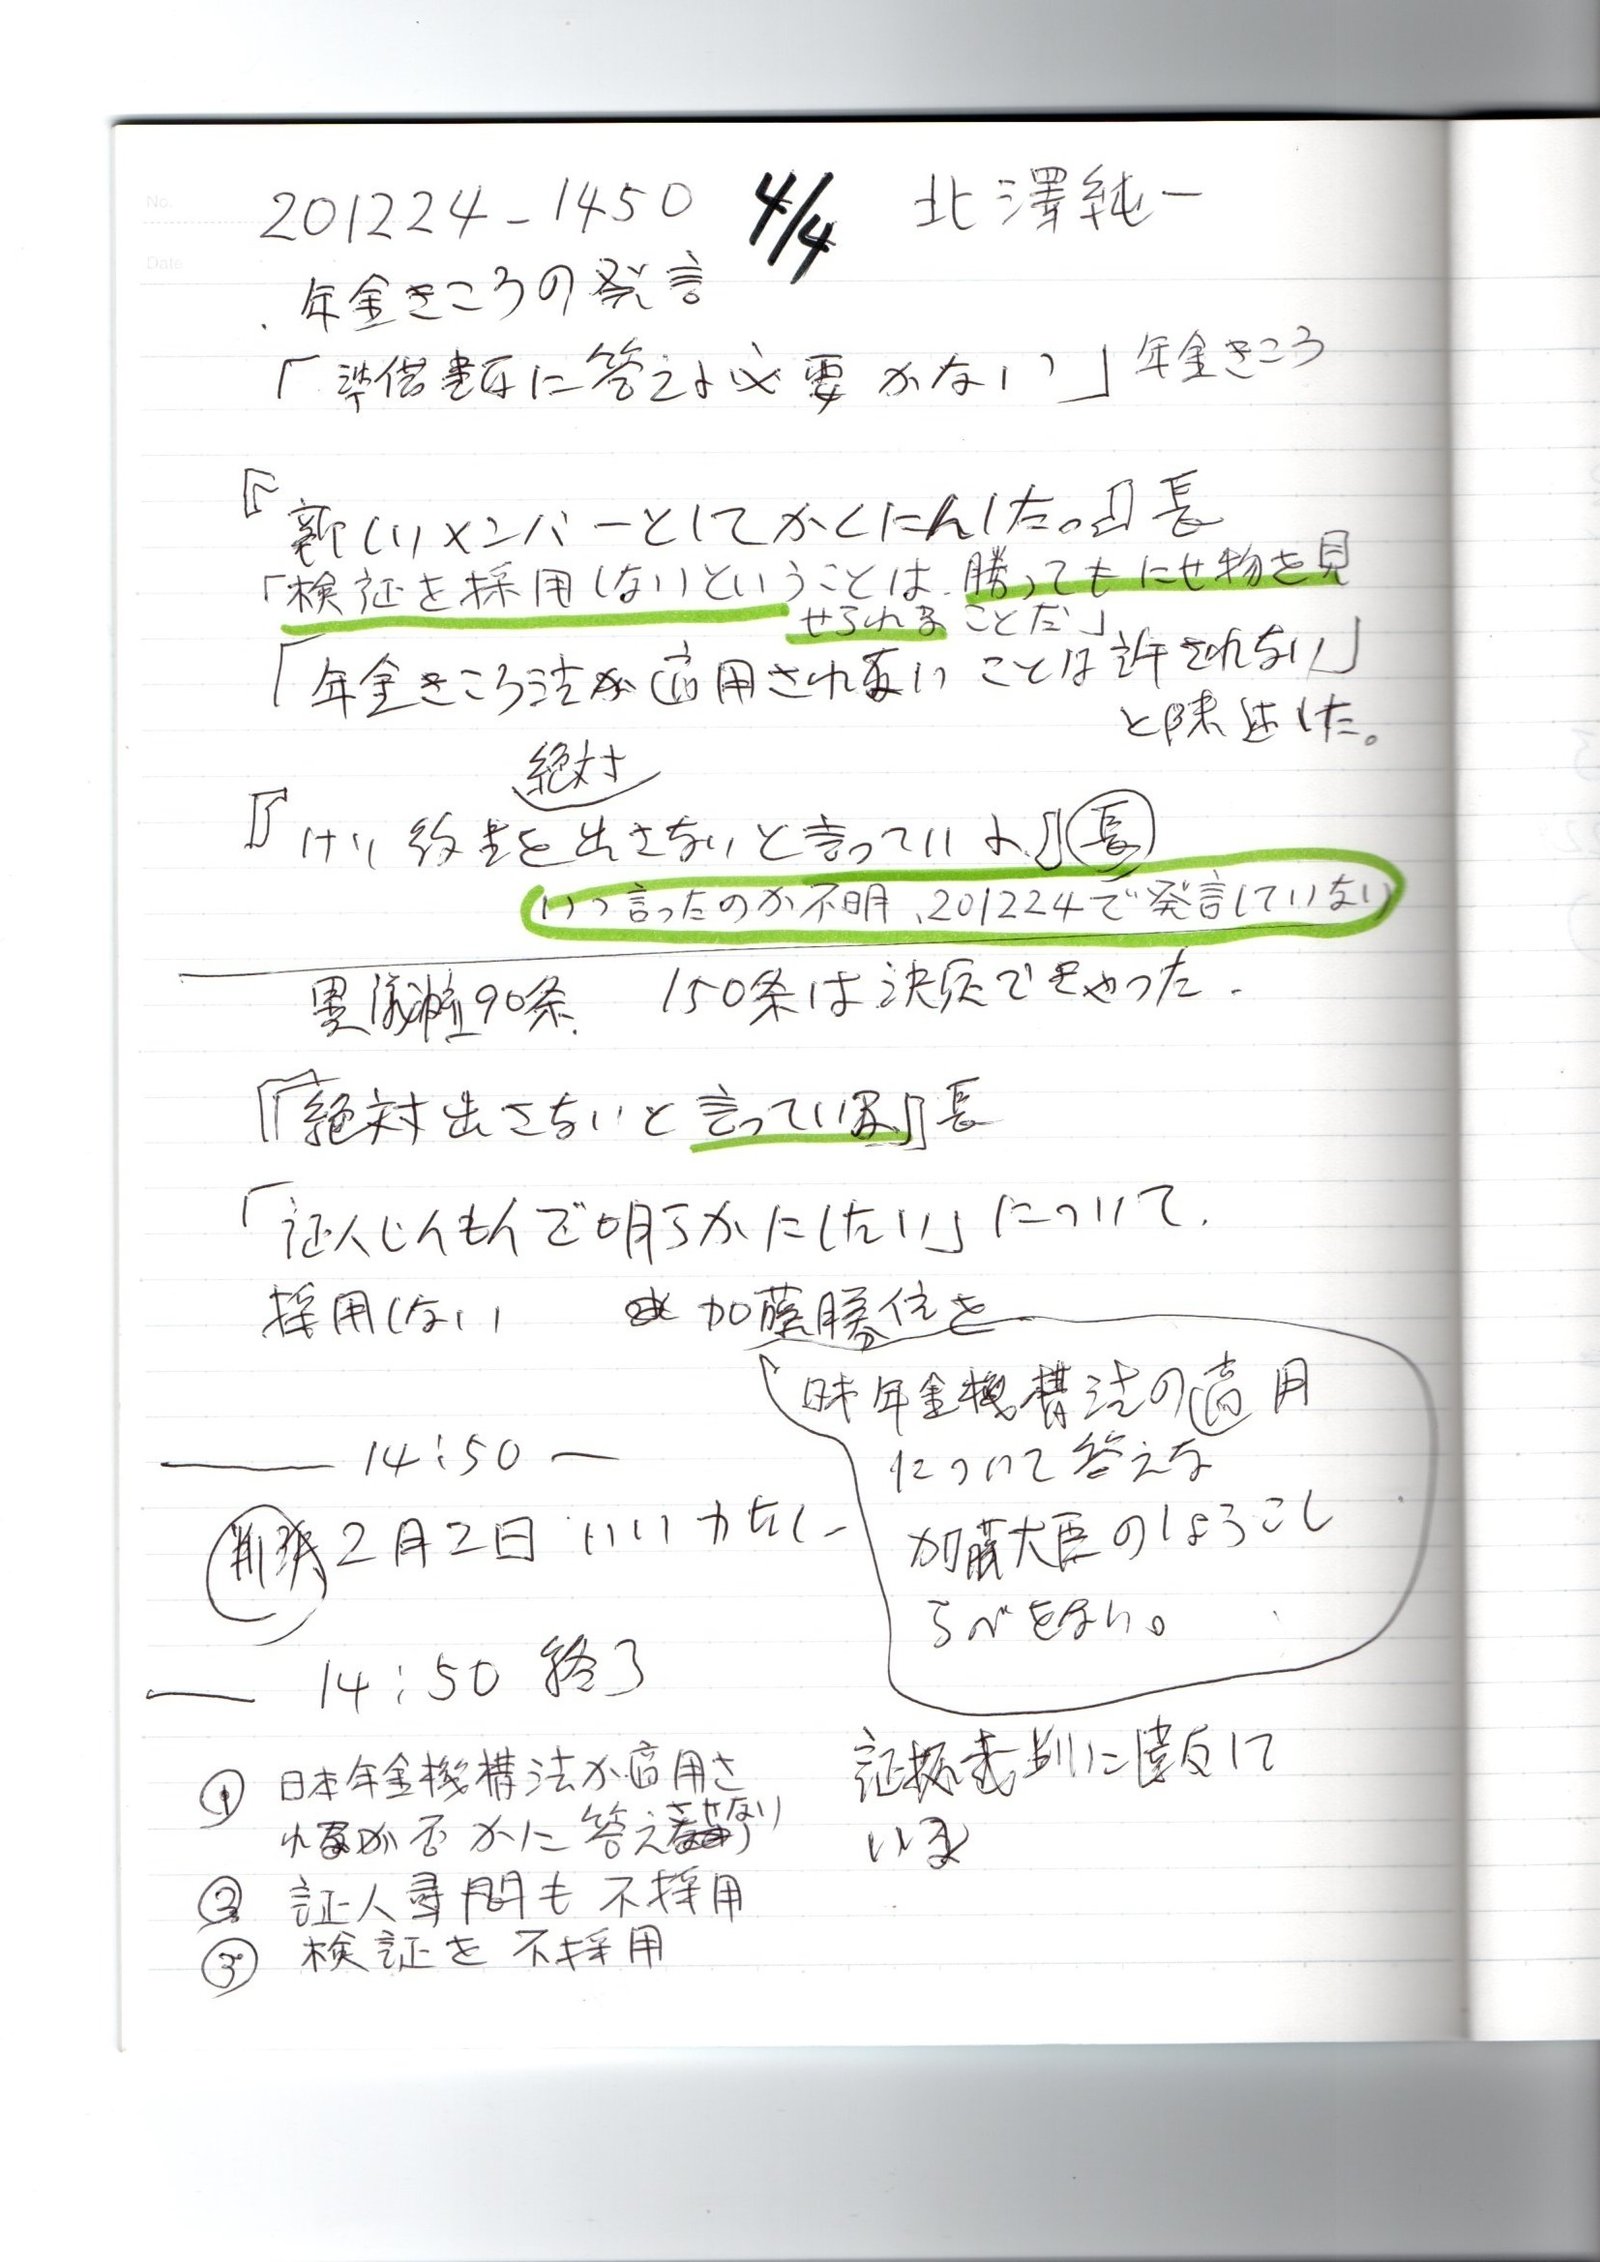 No.
Date
201224-1450 4/4 北澤純一
年金きころの発言
「準備書面に答える必要がない」年金きころ
『新しいメンバーとしてかくにんした。』長
「検証を採用しないということは、勝ってもにせ物を見
せられることだ」
「年金きころ法が適用されないことは許されない」
と陳述した。
絶対
『けい約書を出さないと言っている』長
いつ言ったのか不明、201224で発言していない
異議権90条 150条は決定できゃった.
『絶対出さないと言っている』長
「証人じんもんで明らかにしたい」について.
採用しない 加藤勝信を
日本年金機構法の適用
について答えな
加藤大臣のしょうこし
らべをない。
14:50
判決 2月2日 いいかたし
14:50 終了
① 日本年金機構法が適用さ
れるか否かに答えさせない
② 証人尋問も不採用
③ 検証を不採用
証拠裁判に違反して
いる